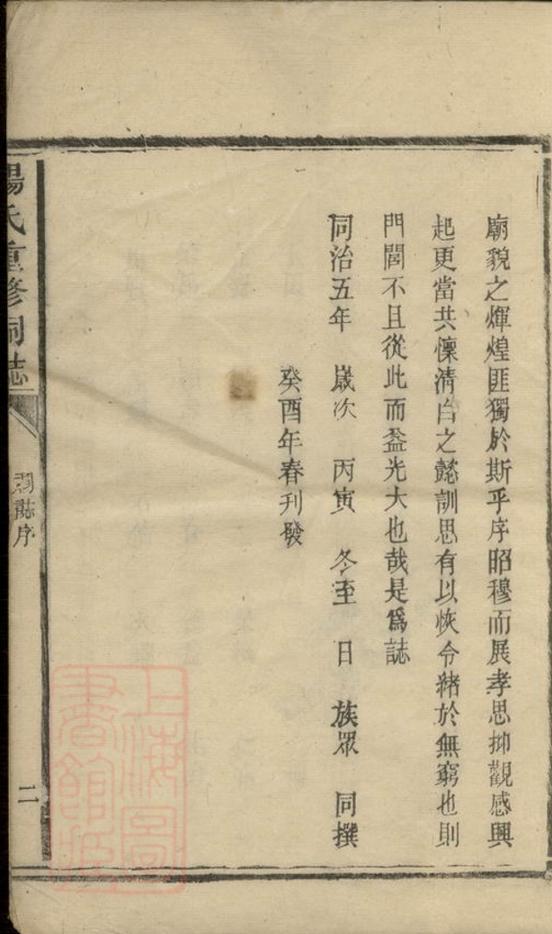 廟貌之煇煌匪獨於斯乎序昭穆而展孝思抑觀感興
起更當共懍清白之懿訓思有以恢令緒於無窮也則
門閭不且從此而益光大也哉是爲誌
同治五年 歲次 丙寅 冬至 日 族眾 同撰
癸酉年春刊發
楊氏重修祠誌
祠誌序
二
上海圖書館藏